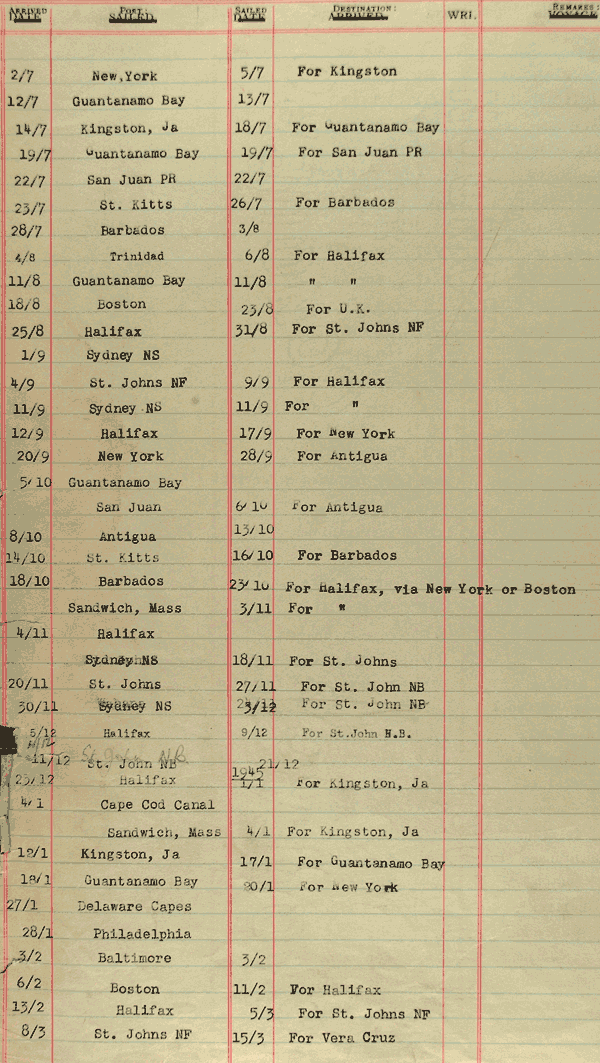 ARRIVED DATE PORT: SAILED SAILED DATE DESTINATION: ARRIVED WRI. REMARKS: VOYAGE
2/7 New,York 5/7 For Kingston
12/7 Guantanamo Bay 13/7
14/7 Kingston, Ja 18/7 For Guantanamo Bay
19/7 Guantanamo Bay 19/7 For San Juan PR
22/7 San Juan PR 22/7
23/7 St. Kitts 26/7 For Barbados
28/7 Barbados 3/8
4/8 Trinidad 6/8 For Halifax
11/8 Guantanamo Bay 11/8 " "
18/8 Boston 23/8 For U.K.
25/8 Halifax 31/8 For St. Johns NF
1/9 Sydney NS
4/9 St. Johns NF 9/9 For Halifax
11/9 Sydney NS 11/9 For "
12/9 Halifax 17/9 For New York
20/9 New York 28/9 For Antigua
5/10 Guantanamo Bay
San Juan 6/10 For Antigua
8/10 Antigua 13/10
14/10 St. Kitts 16/10 For Barbados
18/10 Barbados 23/10 For Halifax, via New York or Boston
Sandwich, Mass 3/11 For "
4/11 Halifax
Sydney NS 18/11 For St. Johns
20/11 St. Johns 27/11 For St. John NB
30/11 Sydney NS 3/12 For St. John NB
5/12 Halifax 9/12 For St.John N.B.
St. John N.B.
11/12 St. John NB 21/12
23/12 Halifax 1945 1/1 For Kingston, Ja
4/1 Cape Cod Canal
Sandwich, Mass 4/1 For Kingston, Ja
12/1 Kingston, Ja 17/1 For Guantanamo Bay
18/1 Guantanamo Bay 20/1 For New York
27/1 Delaware Capes
28/1 Philadelphia
3/2 Baltimore 3/2
6/2 Boston 11/2 For Halifax
13/2 Halifax 5/3 For St. Johns NF
8/3 St. Johns NF 15/3 For Vera Cruz